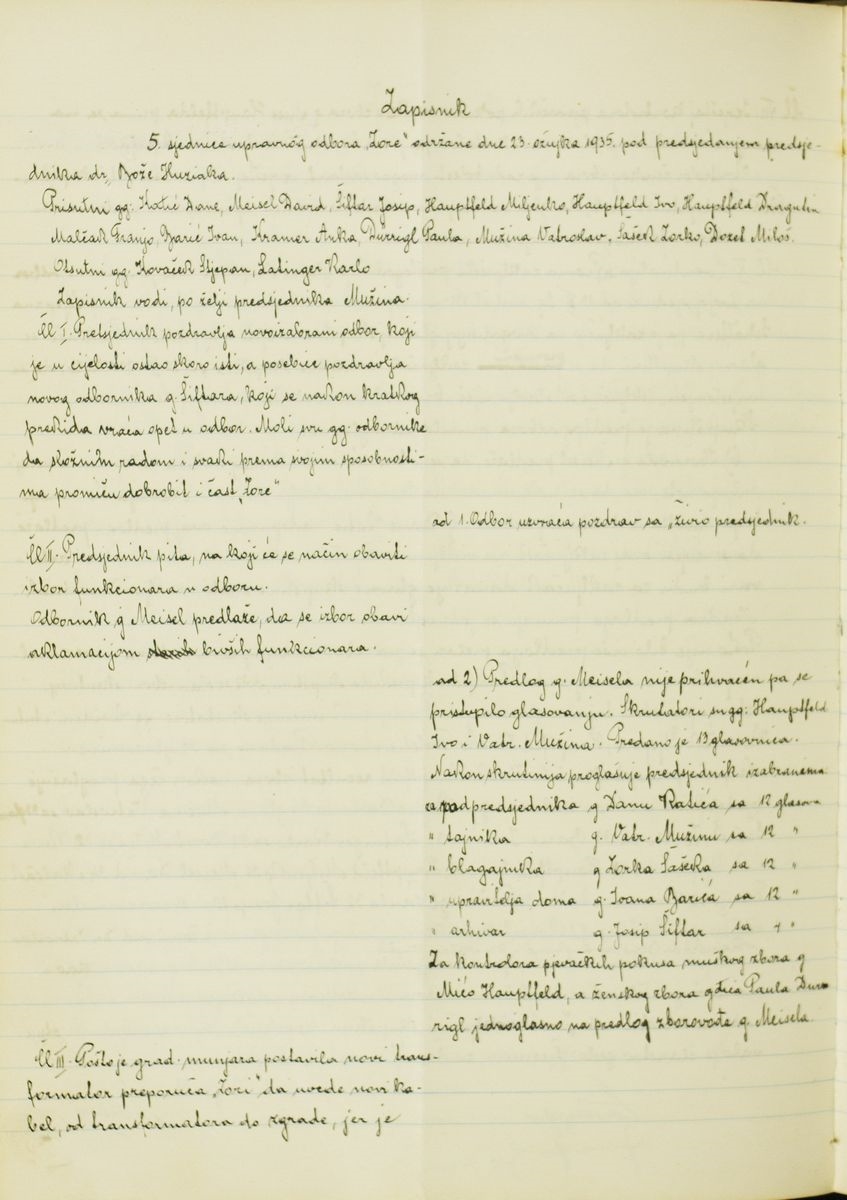 Zapisnik
5. sjednice upravnog odbora „Zore“ održane dne 23. ožujka 1935. pod predsjedanjem predsje-
dnika dr. Bože Huziaka.
Prisutni gg: Kotić Dane, Meisel David, Šiftar Josip, Hauptfeld Miljenko, Hauptfeld Ivo, Hauptfeld Dragutin
Malčak Franjo, Barić Ivan, Kramer Anka, Dürrigl Paula, Mužina Vatroslav, Šašek Zorko, Dozet Miloš.
Otsutni gg. Kovaček Stjepan, Latinger Karlo
Zapisnik vodi, po želji predsjednika Mužina.
Čl I. Pretsjednik pozdravlja novoizabrani odbor, koji
je u cijelosti ostao skoro isti, a posebice pozdravlja
novog odbornika g. Šiftara, koji se nakon kratkog
prekida vraća opet u odbor. Moli svu gg. odbornike
da složnim radom i svaki prema svojim sposobnosti-
ma promiču dobrobit i čast „Zore“
ad 1. Odbor uzvraća pozdrav sa „živio predsjednik.
Čl II. Predsjednik pita, na koji će se način obaviti
izbor funkcionara u odboru.
Odbornik g Meisel predlaže, da se izbor obavi
aklamacijom bivših funkcionara.
ad 2) Predlog g. Meisela nije prihvaćen pa se
pristupilo glasovanju. Skrutatori su gg: Hauptfeld
Ivo i Vatr. Mužina. Predano je 13 glasovnica.
Nakon skrutinija proglašuje predsjednik izabranima
za podpredsjednika g Danu Katića sa 12 glasova
" tajnika g. Vatr. Mužinu sa 12 "
" blagajnika g Zorka Šašeka sa 12 "
" upravitelja doma g. Ivana Barića sa 12 "
" arhivar g. Josip Šiftar sa "
Za kontrolora pjevačkih pokusa muškog zbora g
Mićo Hauptfeld, a ženskog zbora gđica Paula Dür-
rigl jednoglasno na predlog zborovođe g. Meisela.
Čl III. Pošto je grad. munjara postavila novi trans-
formator preporuča „Zori“ da uvede novi ka-
bel, od transformatora do zgrade, jer je